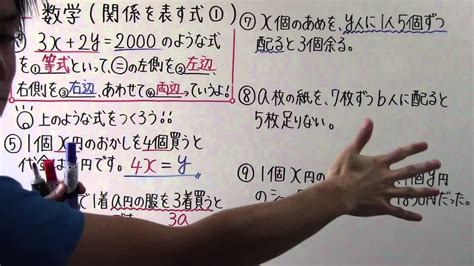 数学(関係を表す式①)
3x+2y=2000のような式
を①等式といって、=の左側を②左辺、
右側を③右辺、あわせて④両辺っていうよ!
上のような式をつくろう!!
⑤1個x円のおかしを4個買うと
代金は 円です。 4x=y
で1着a円の服を3着買うと
です。 3a
⑦x個のあめを、y人に1人5個ずつ
配ると3個余る。
⑧a枚の紙を、7枚ずつb人に配ると
5枚足りない。
⑨1個x円の 1個y円
の 90円だった。